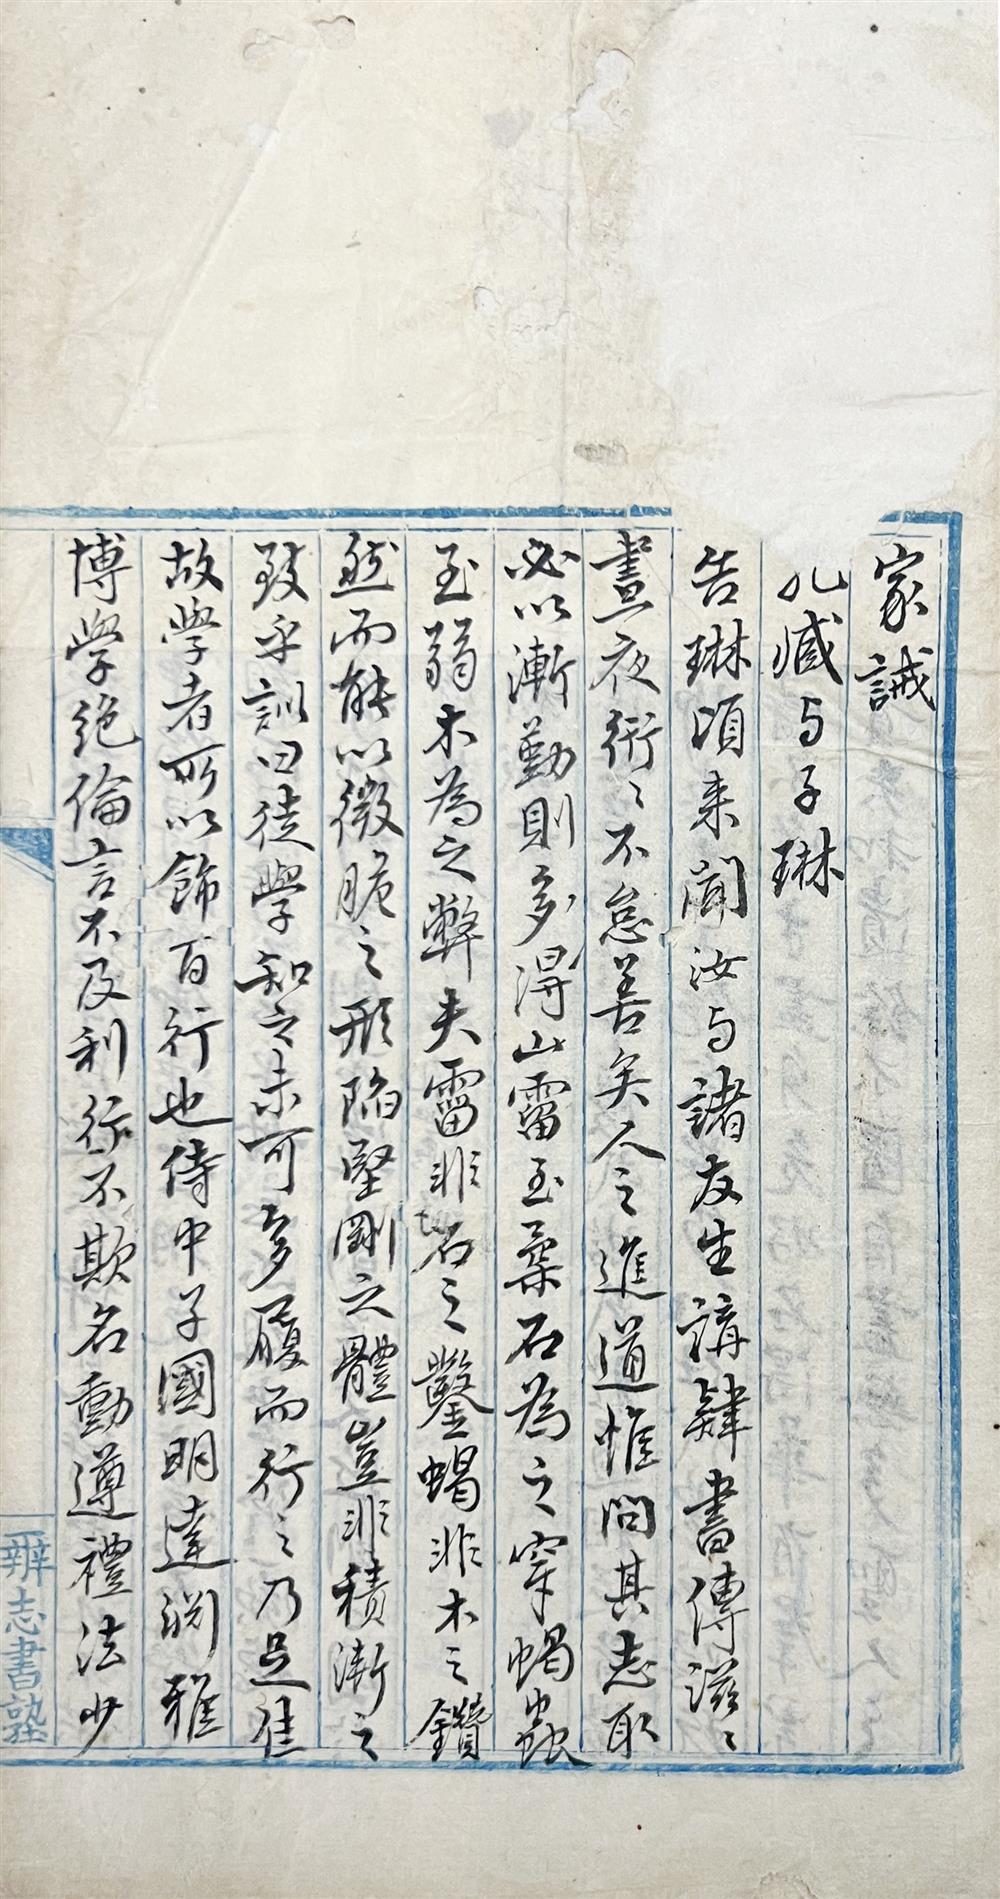 家誡
孔臧与子琳
告琳頃来聞汝与諸友生講肄書傳滋〻
晝夜衎〻不怠善矣人之進道惟問其志取
必以漸勤則多淂山霤至柔石為之穿蝎蟲
至弱木為之弊夫霤非石之鑿蝎非木之鑽
然而能以微脆之形陷堅剛之體豈非積漸之
致乎訓曰徒學知之未可多履而行之乃足佳
故學者所以飾百行也侍中子國明達渊雅
博學絶倫言不及利行不欺名動遵禮法少
辨志書塾